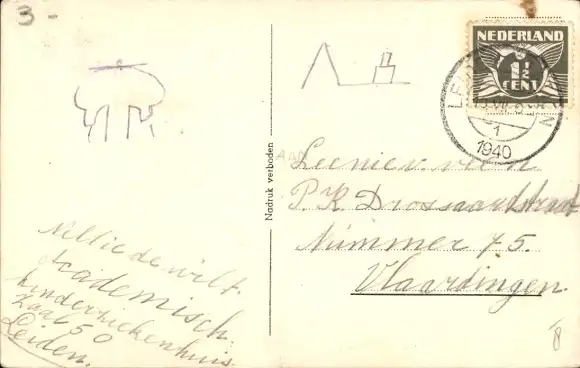 3-
NEDERLAND
1½
CENT
LEIDEN
1
1940
Nadruk verboden
AAN
P. K. Drossaardstraat
Nummer 75.
Vlaardingen
Nellie de wilt.
Academisch.
kinderziekenhuis
Zaal 50
Leiden.
8